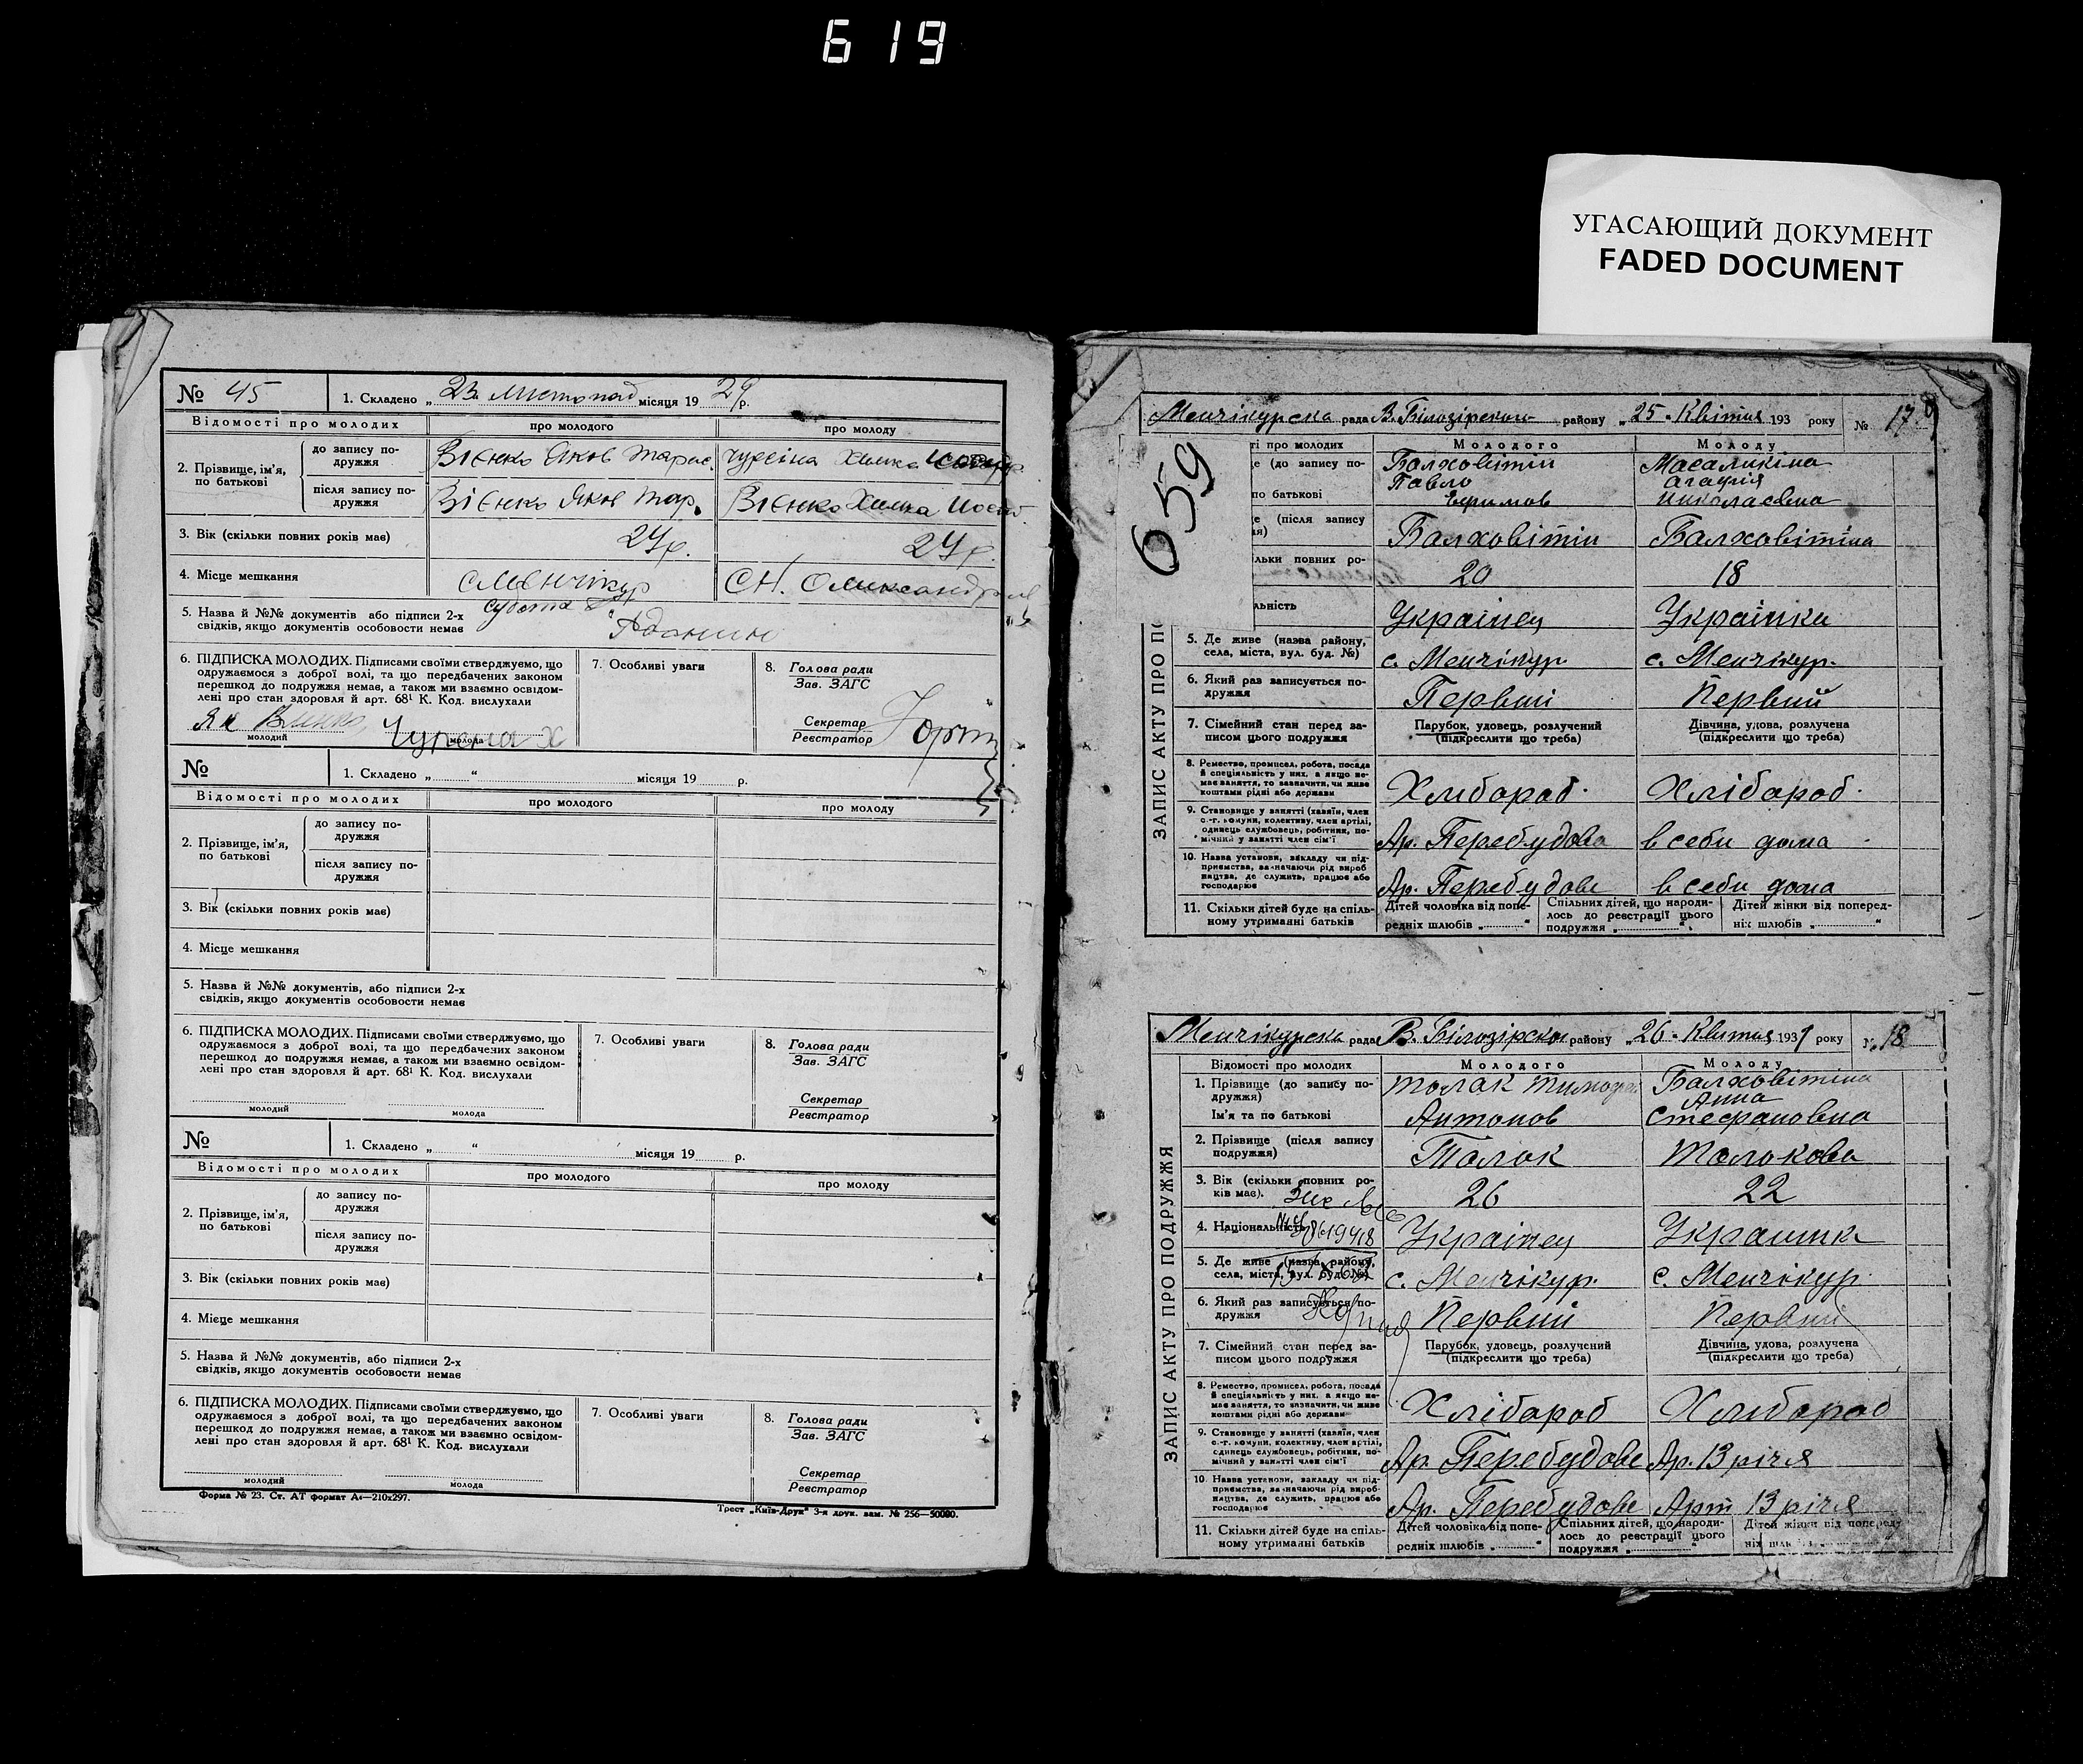 619
УГАСАЮЩИЙ ДОКУМЕНТ
FADED DOCUMENT
№ 45
1. Складено „23 листопад місяця 1929 р.
Відомості про молодих
про молодого
про молоду
2. Прізвище, ім'я, по батькові
до запису подружжя
Вієнко Яков Тарас.
Чурсіна Химка
після запису подружжя
Вієнко Яков Тар.
Вієнко Химка
3. Вік (скільки повних років має)
24 р.
24 р.
4. Місце мешкання
с Менчікур
СН. Олександр
5. Назва й №№ документів або підписи 2-х
свідків, якщо документів особовости немає
6. ПІДПИСКА МОЛОДИХ. Підписами своїми стверджуємо, що
одружаємося з доброї волі, та що передбачених законом
перешкод до подружжя немає, а також ми взаємно освідом-
лені про стан здоровля й арт. 68¹ К. Код. вислухали
молодий
Чурсина Х
молода
7. Особливі уваги
8. Голова ради
Зав. ЗАГС
Секретар
Реєстратор
№
1. Складено „ “ місяця 19 р.
Відомості про молодих
про молодого
про молоду
2. Прізвище, ім'я,
по батькові
до запису по-
дружжя
після запису по-
дружжя
3. Вік (скільки повних років має)
4. Місце мешкання
5. Назва й №№ документів, або підписи 2-х
свідків, якщо документів особовости немає
6. ПІДПИСКА МОЛОДИХ. Підписами своїми стверджуємо, що
одружаємося з доброї волі, та що передбачених законом
перешкод до подружжя немає, а також ми взаємно освідом-
лені про стан здоровля й арт. 68¹ К. Код. вислухали
молодий
молода
7. Особливі уваги
8. Голова ради
Зав. ЗАГС
Секретар
Реєстратор
№
1. Складено „ “ місяця 19 р.
Відомості про молодих
про молодого
про молоду
2. Прізвище, ім'я,
по батькові
до запису по-
дружжя
після запису по-
дружжя
3. Вік (скільки повних років має)
4. Місце мешкання
5. Назва й №№ документів, або підписи 2-х
свідків, якщо документів особовости немає
6. ПІДПИСКА МОЛОДИХ. Підписами своїми стверджуємо, що
одружаємося з доброї волі, та що передбачених законом
перешкод до подружжя немає, а також ми взаємно освідом-
лені про стан здоровля й арт. 68¹ К. Код. вислухали
молодий
молода
7. Особливі уваги
8. Голова ради
Зав. ЗАГС
Секретар
Реєстратор
Форма № 23. Ст. АТ формат А₄—210х297.
Трест „Київ-Друк“ 3-я друк. зам. № 256—50000.
659
Менчікурска рада В. Білозірского району „25 - Квітня 193 року № 17
ті про молодих
Молодого
Молоду
е (до запису по-
по батькові
Балховітін
Павло
Ефимов
Масаликіна
Агафія
Николаєвна
е (після запису
Балховітін
Балховітіна
льки повних ро-
20
18
льність
Українец
Українка
5. Де живе (назва району,
села, міста, вул. буд. №)
с. Менчікур.
с. Менчікур.
6. Який раз записується по-
дружжя
Первий
Первий
7. Сімейний стан перед за-
писом цього подружжя
Парубок, удовець, розлучений
(підкреслити що треба)
Дівчина, удова, розлучена
(підкреслити що треба)
8. Ремество, промисел, робота, посада
й спеціяльність у них, а якщо не-
має заняття, то зазначити, чи живе
коштами рідні або держави
Хлибороб.
Хлібороб.
9. Становище у занятті (хазяїн, член
с.-г. комуни, колективу, член артілі,
одинець службовець, робітник, по-
мічний у занятті член сім'ї
Ар. Перебудова
в себи дома
10. Назва установи, закладу чи під-
приємства, зазначаючи рід вироб
ництва, де служить, працює або
господарює
Ар. Перебудове
в себи дома
11. Скільки дітей буде на спіль-
ному утриманні батьків
Дітей чоловіка від попе-
редніх шлюбів „ “
Спільних дітей, що народи-
лось до реєстрації цього
подружжя „ “
Дітей жінки від поперед-
ніх шлюбів „ “
ЗАПИС АКТУ ПРО ПО
Менчікурска рада В. Білозірского району „26 - Квітня 1931 року № 18
Відомості про молодих
Молодого
Молоду
1. Прізвище (до запису по-
дружжя)
Ім'я та по батькові
Толак Тимофей
Антонов
Балховітіна
Анна
Стефановна
2. Прізвище (після запису
подружжя)
Толок
Толокова
3. Вік (скільки повних ро-
ків має).
26
22
4. Національність
Українец
Украинка
5. Де живе (назва району,
села, міста, вул. буд. №)
с. Менчікур.
с. Менчікур.
6. Який раз записується по-
дружжя
Первий
Первий
7. Сімейний стан перед за-
писом цього подружжя
Парубок, удовець, розлучений
(підкреслити що треба)
Дівчина, удова, розлучена
(підкреслити що треба)
8. Ремество, промисел, робота, посада
й спеціяльність у них, а якщо не-
має заняття, то зазначити, чи живе
коштами рідні або держави
Хлібороб
Хлибороб
9. Становище у занятті (хазяїн, член
с.-г. комуни, колективу, член артілі,
одинець службовець, робітник, по-
мічний у занятті член сім'ї
Ар. Перебудове
Ар. 13 річя
10. Назва установи, закладу чи під-
приємства, зазначаючи рід вироб-
ництва, де служить, працює або
господарює
Ар. Перебудове
Арт 13 річя
11. Скільки дітей буде на спіль-
ному утриманні батьків
Дітей чоловіка від попе-
редніх шлюбів „ “
Спільних дітей, що народи-
лось до реєстрації цього
подружжя „ “
Дітей жінки від поперед
ЗАПИС АКТУ ПРО ПОДРУЖЖЯ